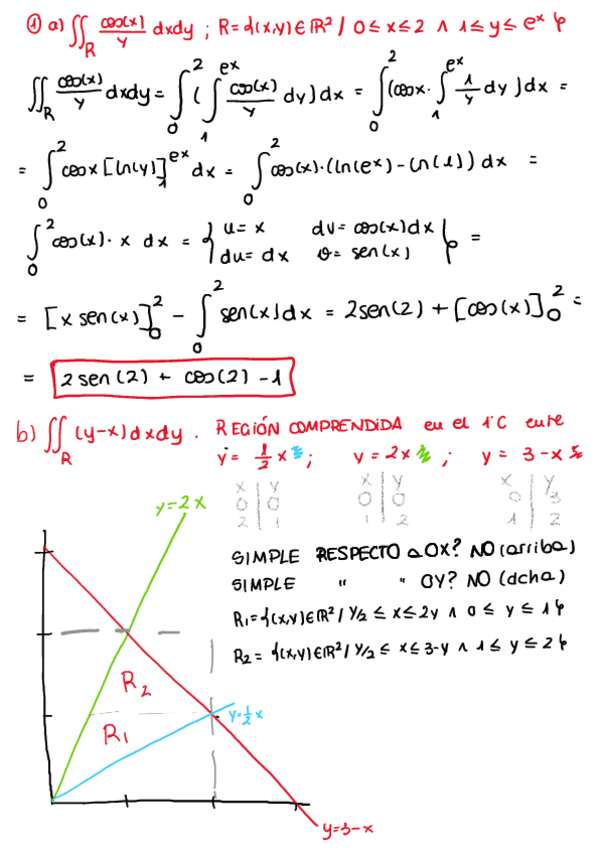 ① a) ∬_R cos(x)/y dxdy ; R={(x,y)∈ℝ² / 0≤x≤2 ∧ 1≤y≤e^x}
∬_R cos(x)/y dxdy = ∫_0^2 (∫_1^{e^x} cos(x)/y dy)dx = ∫_0^2 (cosx · ∫_1^{e^x} 1/y dy)dx =
= ∫_0^2 cosx [ln(y)]_1^{e^x} dx = ∫_0^2 cos(x)·(ln(e^x)-ln(1)) dx =
∫_0^2 cos(x)· x dx = { u= x dv= cos(x)dx
du= dx v= sen(x) } =
= [x sen(x)]_0^2 - ∫_0^2 sen(x)dx = 2sen(2) + [cos(x)]_0^2 =
= 2 sen(2) + cos(2) -1
b) ∬_R (y-x)dxdy . REGIÓN COMPRENDIDA en el 1ºC entre
y= 1/2 x ; y= 2x ; y= 3-x
x | y x | y x | y
0 | 0 0 | 0 0 | 3
2 | 1 1 | 2 1 | 2
y=2x
SIMPLE RESPECTO a OX? NO (arriba)
SIMPLE " " OY? NO (dcha)
R1={(x,y)∈ℝ² / y/2 ≤ x ≤ 2y ∧ 0 ≤ y ≤ 1}
R2= {(x,y)∈ℝ² / y/2 ≤ x ≤ 3-y ∧ 1≤ y ≤ 2}
R2
R1
y=1/2 x
y=3-x